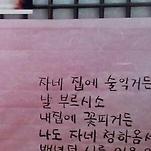 자네 집에 술익거든
날 부르시소
내집에 꽃피거든
나도 자네 청하옴세